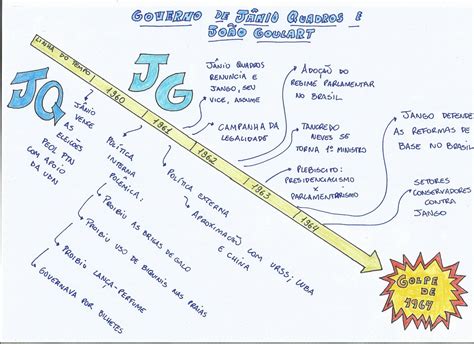 GOVERNO DE JÂNIO QUADROS E
JOÃO GOULART
LINHA DO TEMPO
1960
1961
1962
1963
1964
JQ
JG
JÂNIO
VENCE
AS
ELEIÇÕES
PELO PTN
COM APOIO
DA UDN
JÂNIO QUADROS
RENUNCIA E
JANGO, SEU
VICE, ASSUME
CAMPANHA DA
LEGALIDADE
ADOÇÃO DO
REGIME PARLAMENTAR
NO BRASIL
TANCREDO
NEVES SE
TORNA 1º MINISTRO
PLEBISCITO:
PRESIDENCIALISMO
X
PARLAMENTARISMO
JANGO DEFENDE
AS REFORMAS DE
BASE NO BRASIL
SETORES
CONSERVADORES
CONTRA
JANGO
POLÍTICA
INTERNA
POLÊMICA:
PROIBIU AS BRIGAS DE GALO
PROIBIU USO DE BIQUINIS NAS PRAIAS
PROIBIU LANÇA-PERFUME
GOVERNAVA POR BILHETES
POLÍTICA EXTERNA
APROXIMAÇÃO COM URSS, CUBA
E CHINA
GOLPE
DE
1964